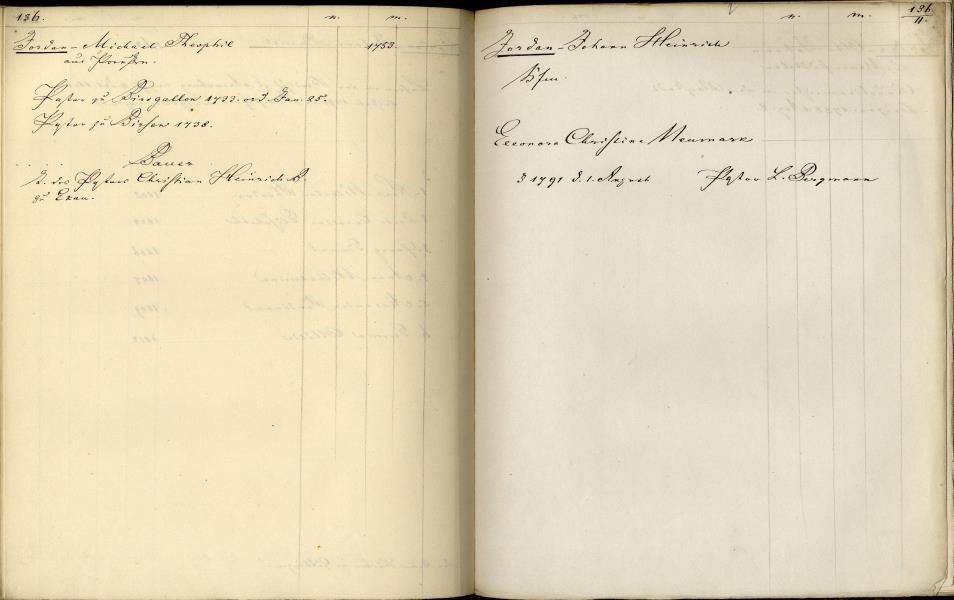 136. n. m.
Jordan - Michael Theophil 1753.
aus Preußen.
Pastor zu Birsgallen 1733. ord. Jan. 25.
Pastor zu Birsen 1738.
. . . . . Bauer
T. des Pastors Christian Heinrich B.
zu Ekau.
n. m. 136/II.
Jordan - Johann Heinrich
Eleonora Christine Neumark
1791 d. 1. August Pastor L. Bergmann